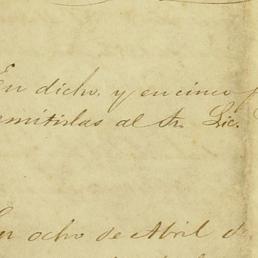 En dicho. y en cinco f
mitirlas al Sr. Lic.
En ocho de Abril d